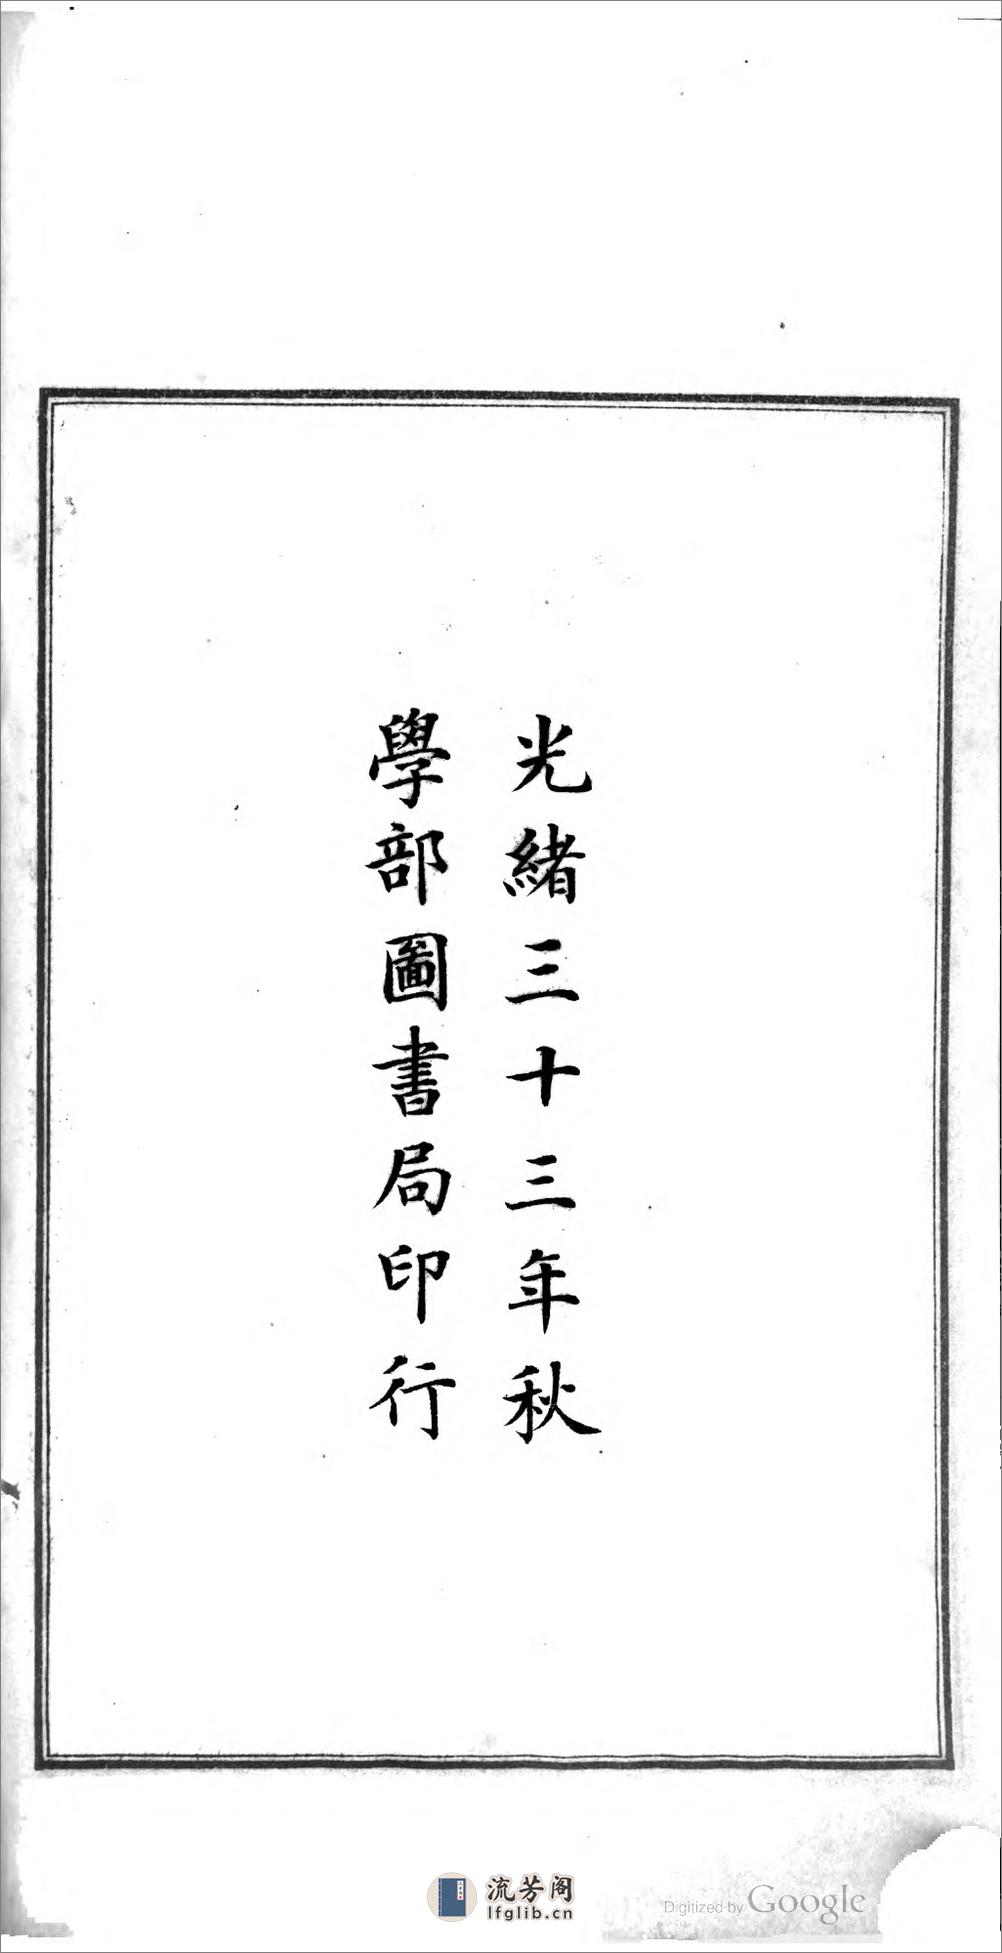 光緒三十三年秋
學部圖書局印行
流芳阁
lfglib.cn
Digitized by Google